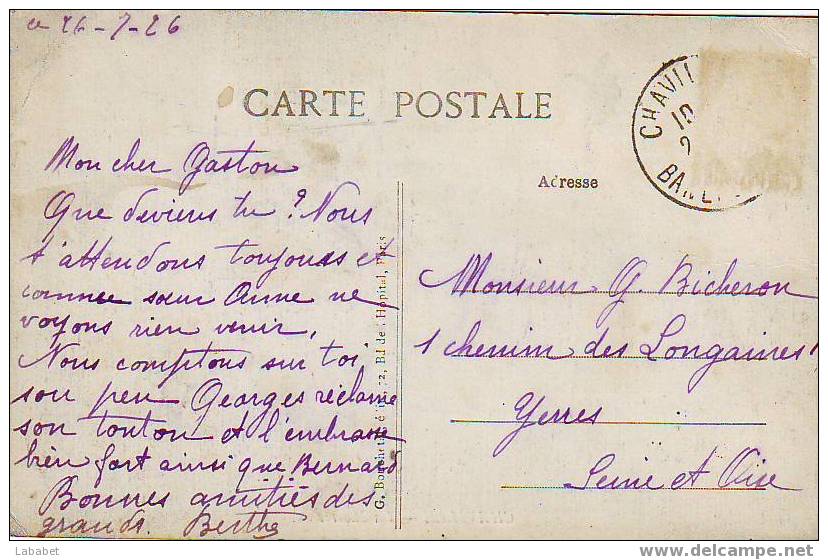 ce 26-7-26
CARTE POSTALE
CHAVIL
19
2
BANL
Adresse
Mon cher Gaston
Que deviens tu ? Nous
t'attendons toujours et
comme sœur Anne ne
voyons rien venir.
Nous comptons sur toi
son peu Georges réclame
son tonton et l'embrasse
bien fort ainsi que Bernard
Bonnes amitiés des
grands. Berthe
G. 72, Bd de l'Hôpital, Paris
Monsieur G. Bicheron
1 chemin des Longaines
Yerres
Seine et Oise
Lababet
delcampe.net